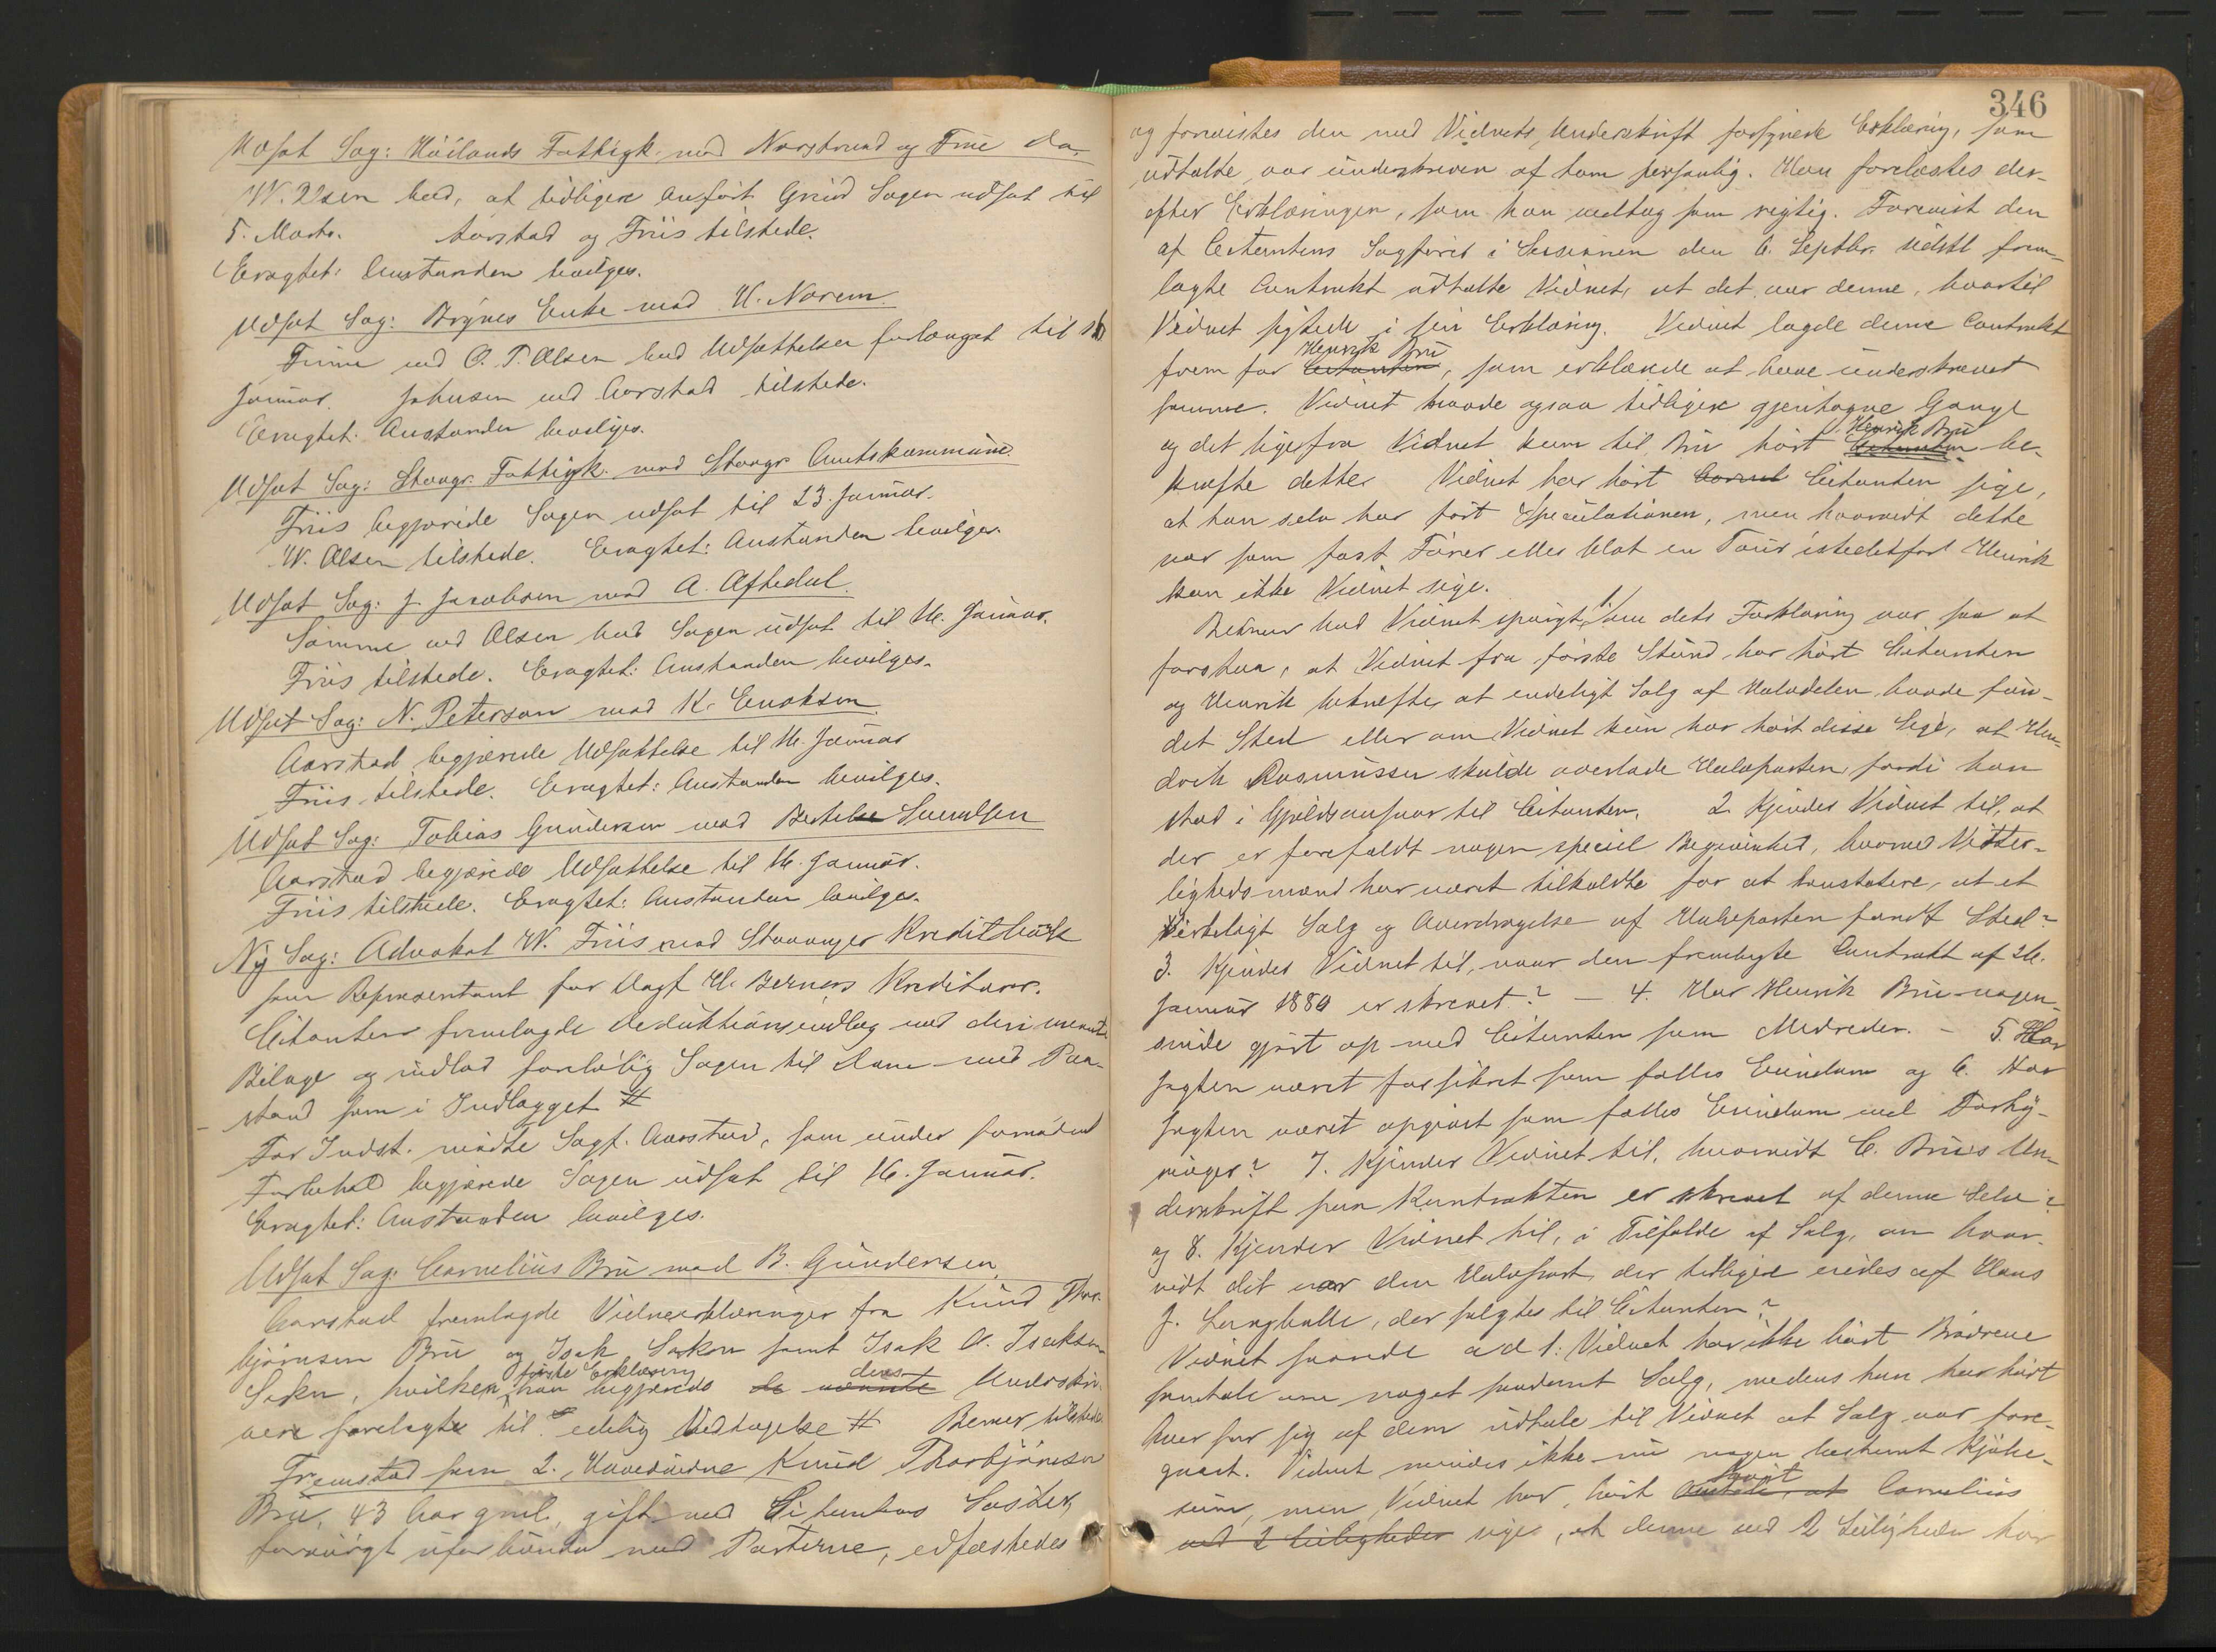 Udsat Sag: Höilands Fattigk. mod Narstrand og Finö do.
W. Olsen bad, af tidligere anfört Grund Sagen udsat til
5. Marts. Aarstad og Friis tilstede.
Eragtet: Anstanden bevilges.
Udsat Sag: Brynes Enke mod U. Norem.
ved O. T. Olsen bad Udsættelsen forlænget til
Januar. Johnsen ved Aarstad tilstede.
Eragtet. Anstanden bevilges.
Udsat Sag: Stavgr. Fattigk. mod Stavgr Amtskommune.
Friis begjærede Sagen udsat til 23. Januar.
W. Olsen tilstede. Eragtet: Anstanden bevilges.
Udsat Sag: J. Jacobsen mod A. Aftedal.
Sömme ved Olsen bad Sagen udsat til 16. Januar.
Friis tilstede. Eragtet: Anstanden bevilges.
Udsat Sag: N. Peterson mod K. Enoksen.
Aarstad begjærede Udsættelse til 16. Januar
Friis tilstede. Eragtet: Anstanden bevilges.
Udsat Sag: Tobias Gundersen mod Svendsen
Aarstad begjærede Udsættelse til 16. Januar.
Friis tilstede. Eragtet: Anstanden bevilges.
Ny Sag: Advokat W. Friis mod Stavanger Kreditbank
som Repræsentant for Sagf. H. Berners Kreditorer.
Citanten fremlagde Deduktionsindlæg med deri nævnte
Bilage og indlod forelöbig Sagen til Dom med Paa-
stand som i Indlægget #
For Indst. mödte Sagf. Aarstad, som under fornödent
Forbehold begjærede Sagen udsat til 16. Januar.
Eragtet: Anstanden bevilges.
Udsat Sag: Cornelius Bru mod B. Gundersen.
Aarstad fremlagde Vidneerklæringer fra Knud Thor-
björnsen Bru og Isak samt Isak A. Isaksen
förste Erklæring dens
hvilken han begjærede de nævnte Underskri-
vere forelagte til edelig Vedtagelse # Berner tilstede
Fremstod som 2. Knud Thorbjörnsen
Bru, 43 Aar gml., gift med Citantens Söster,
forövrigt uforbunden med Parterne, edfæstedes
346
og forevistes den med Vidnets Underskrift forsynede Erklæring, som
udtalte var underskreven af ham personlig. Han forelæstes der-
efter Erklæringen, som han vedtog som rigtig. Forevist den
af Citantens Sagförer i Sessionen den 6. Septbr. sidstl. frem-
lagte Contrakt udtalte Vidnet, at det var denne, hvortil
Vidnet sigtede i sin Erklæring. Vidnet lagde denne Contrakt
Henrik Bru
frem for Citanten, som erklærede at have underskrevet
samme. Vidnet havde ogsaa tidligere gjentagne Gange
Henrik Bru
og det ligefra Vidnet kom til Bru hört Citanten be-
kræfte dette. Vidnet har hört Citanten sige,
at han selv har fört Speculationen, men hvorvidt dette
var som fast Förer eller blot en Tour istedetfor Henrik
kan ikke Vidnet sige.
Berner bad Vidnet spurgt, 1/ om dets Forklaring var saa at
forstaa, at Vidnet fra förste Stund har hört Citanten
og Henrik bekræfte, at endeligt Salg af Halvdelen havde fun-
det Sted eller om Vidnet kun har hört disse sige, at Hen-
drik Rasmussen skulde overlade Halvparten, fordi han
stod i Gjældsansvar til Citanten. 2. Kjendes Vidnet til, at
der er forefaldt nogen speciel Begivenhed, hvorved Vitter-
lighedsmænd har været tilkaldte for at konstatere, at et
virkeligt Salg og Overdragelse af Halvparten fandt Sted?
3. Kjendes Vidnet til, naar den fremlagte Contrakt af 26.
Januar 1880 er skrevet? – 4. Har Henrik Bru nogen-
sinde gjort op med Citanten som Medreder. – 5. Har
Jagten været forsikret som fælles Eiendom og 6. Har
Jagten været opgivet som fælles Eiendom ved Forhy-
ringer? 7. Kjendes Vidnet til, hvorvidt C. Brus Un-
derskrift paa Kontrakten er skrevet af denne Selv?
og 8. Kjender Vidnet til, i Tilfælde af Salg, om hvor-
vidt det var den Halvpart, der tidligere eiedes af Hans
J. der solgtes til Citanten?
Vidnet svarede ad 1: Vidnet har ikke hört Brödrene
samtale om noget saadant Salg, medens han har hört
hver for sig af dem udtale til Vidnet at Salg var fore-
gaaet. Vidnet mindes ikke nu nogen bestemt Kjöbe-
sum, men Vidnet har hört Cornelius
ved 2 Leiligheder sige, at denne ved 2 Leiligheder har